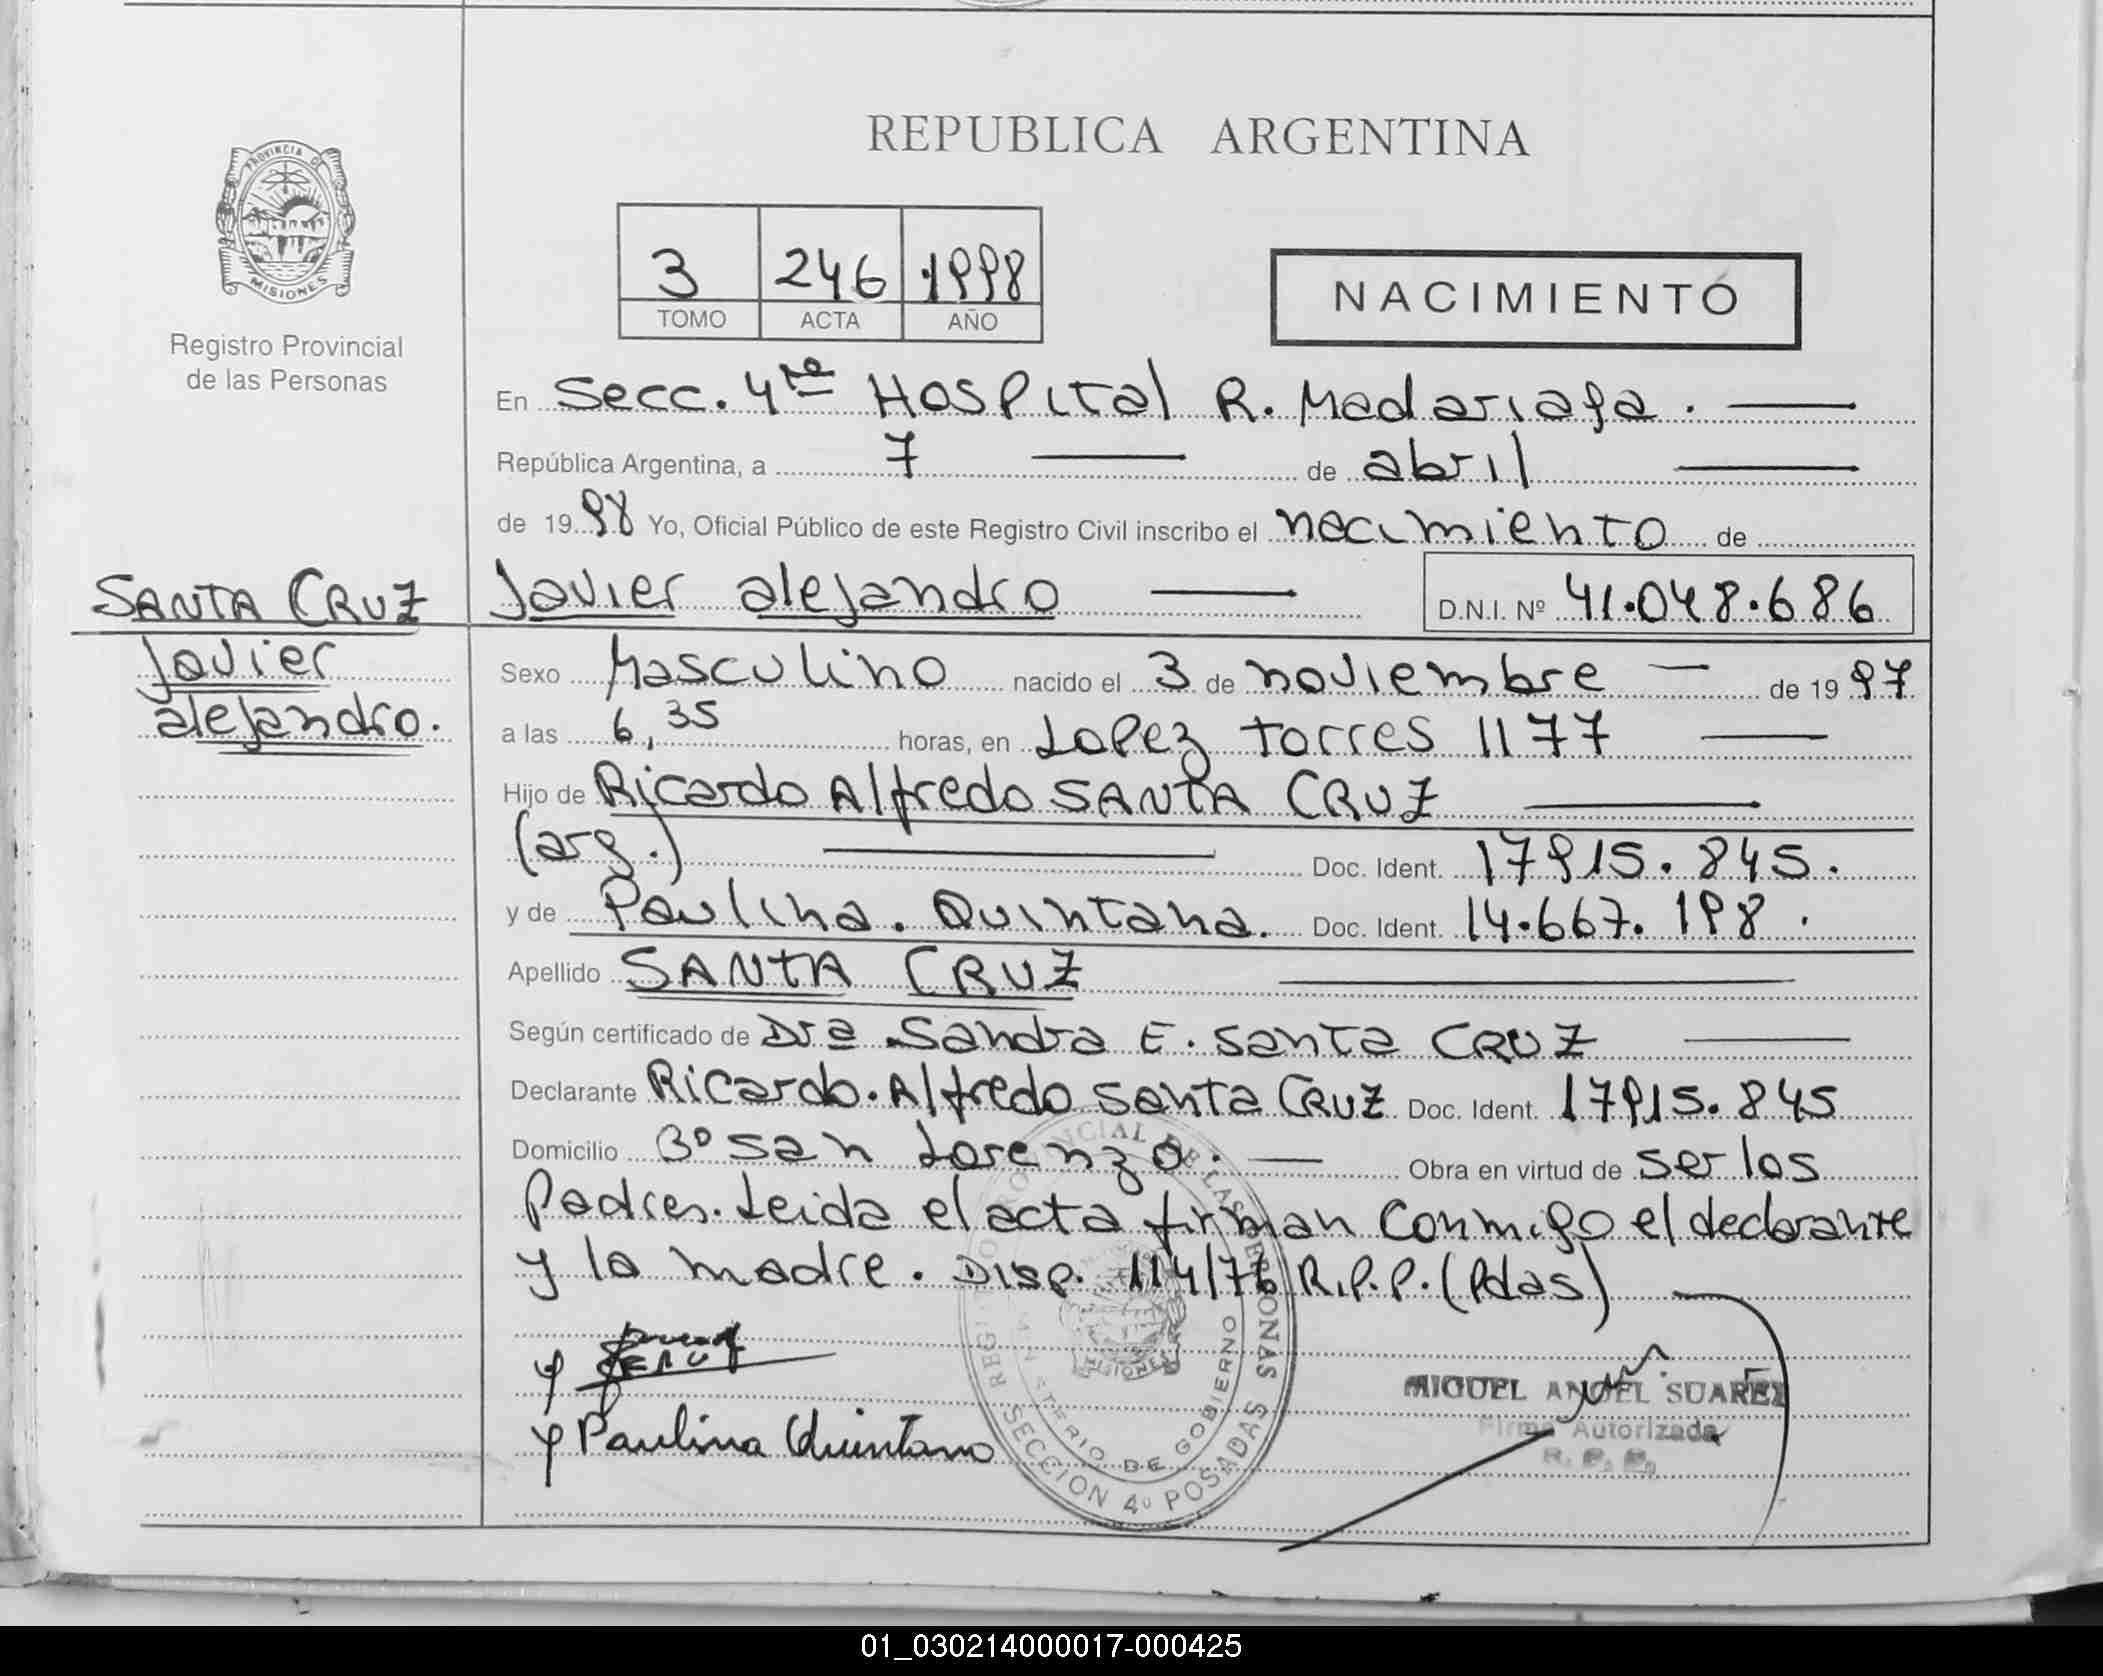 REPUBLICA ARGENTINA
PROVINCIA DE
MISIONES
Registro Provincial
de las Personas
3 246 1998
TOMO ACTA AÑO
NACIMIENTO
En Secc. 4ta Hospital R. Madariaga.
República Argentina, a 7 de abril
de 1998 Yo, Oficial Público de este Registro Civil inscribo el nacimiento de
Javier alejandro D.N.I. Nº 41.048.686
SANTA CRUZ
Javier
alejandro.
Sexo Masculino nacido el 3 de noviembre de 1997
a las 6,35 horas, en Lopez Torres 1177
Hijo de Ricardo Alfredo SANTA CRUZ
(arg.) Doc. Ident. 17915.845.
y de Paulina. Quintana. Doc. Ident. 14.667.198.
Apellido SANTA CRUZ
Según certificado de Dra. Sandra E. Santa CRUZ
Declarante Ricardo. Alfredo Santa CRUZ Doc. Ident. 17915.845
Domicilio Bº San Lorenzo. Obra en virtud de ser los
Padres. Leida el acta firman conmigo el declarante
y la madre. Disp. 114/76 R.P.P. (Pdas)
Paulina Quintana
REGISTRO PROVINCIAL DE LAS PERSONAS
MINISTERIO DE GOBIERNO
MISIONES
SECCION 4º POSADAS
MIGUEL ANGEL SUAREZ
Firma Autorizada
R. P. P.
01_030214000017-000425